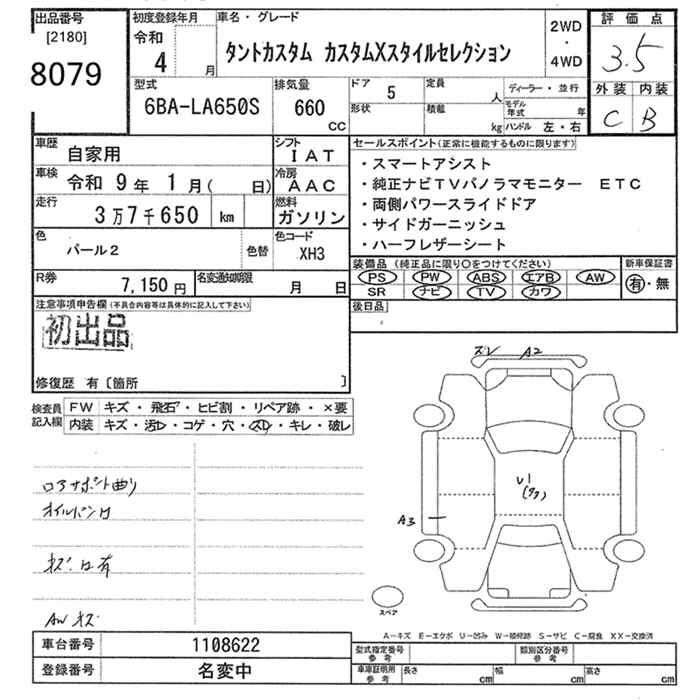 出品番号
[2180]
8079
初度登録年月
令和
4 月
車名・グレード
タントカスタム カスタムXスタイルセレクション
2WD
・
4WD
評価点
3.5
外装 内装
C B
型式
6BA-LA650S
排気量
660
CC
ドア 5
形状
定員 人
積載 kg
ディーラー・並行
モデル年式 年
ハンドル 左・右
車歴 自家用
シフト IAT
車検 令和 9年 1月( 日)
冷房 AAC
走行 3万7千650 km
燃料 ガソリン
色 パール2 色替
色コード XH3
R券 7,150円
名変通知期限 月 日
セールスポイント(正常に機能するものに限ります)
・スマートアシスト
・純正ナビTVパノラマモニター ETC
・両側パワースライドドア
・サイドガーニッシュ
・ハーフレザーシート
装備品(純正品に限り○をつけてください)
PS PW ABS エアB AW
SR ナビ TV カワ
新車保証書
有・無
後日品
注意事項申告欄(不具合内容等は具体的に記入して下さい)
初出品
修復歴 有〔箇所 〕
検査員記入欄
FW キズ・飛石・ヒビ割・リペア跡・×要
内装 キズ・汚レ・コゲ・穴・スレ・キレ・破レ
ロアサポート曲り
オイルパン凹
キズ・凹有
AWキズ
スレ A2
U1
A3
スペア
A-キズ E-エクボ U-凹み W-補修跡 S-サビ C-腐食 XX-交換済
車台番号 1108622
登録番号 名変中
型式指定番号 参考
類別区分番号 参考
車庫証明用 参考
長さ cm
幅 cm
高さ cm